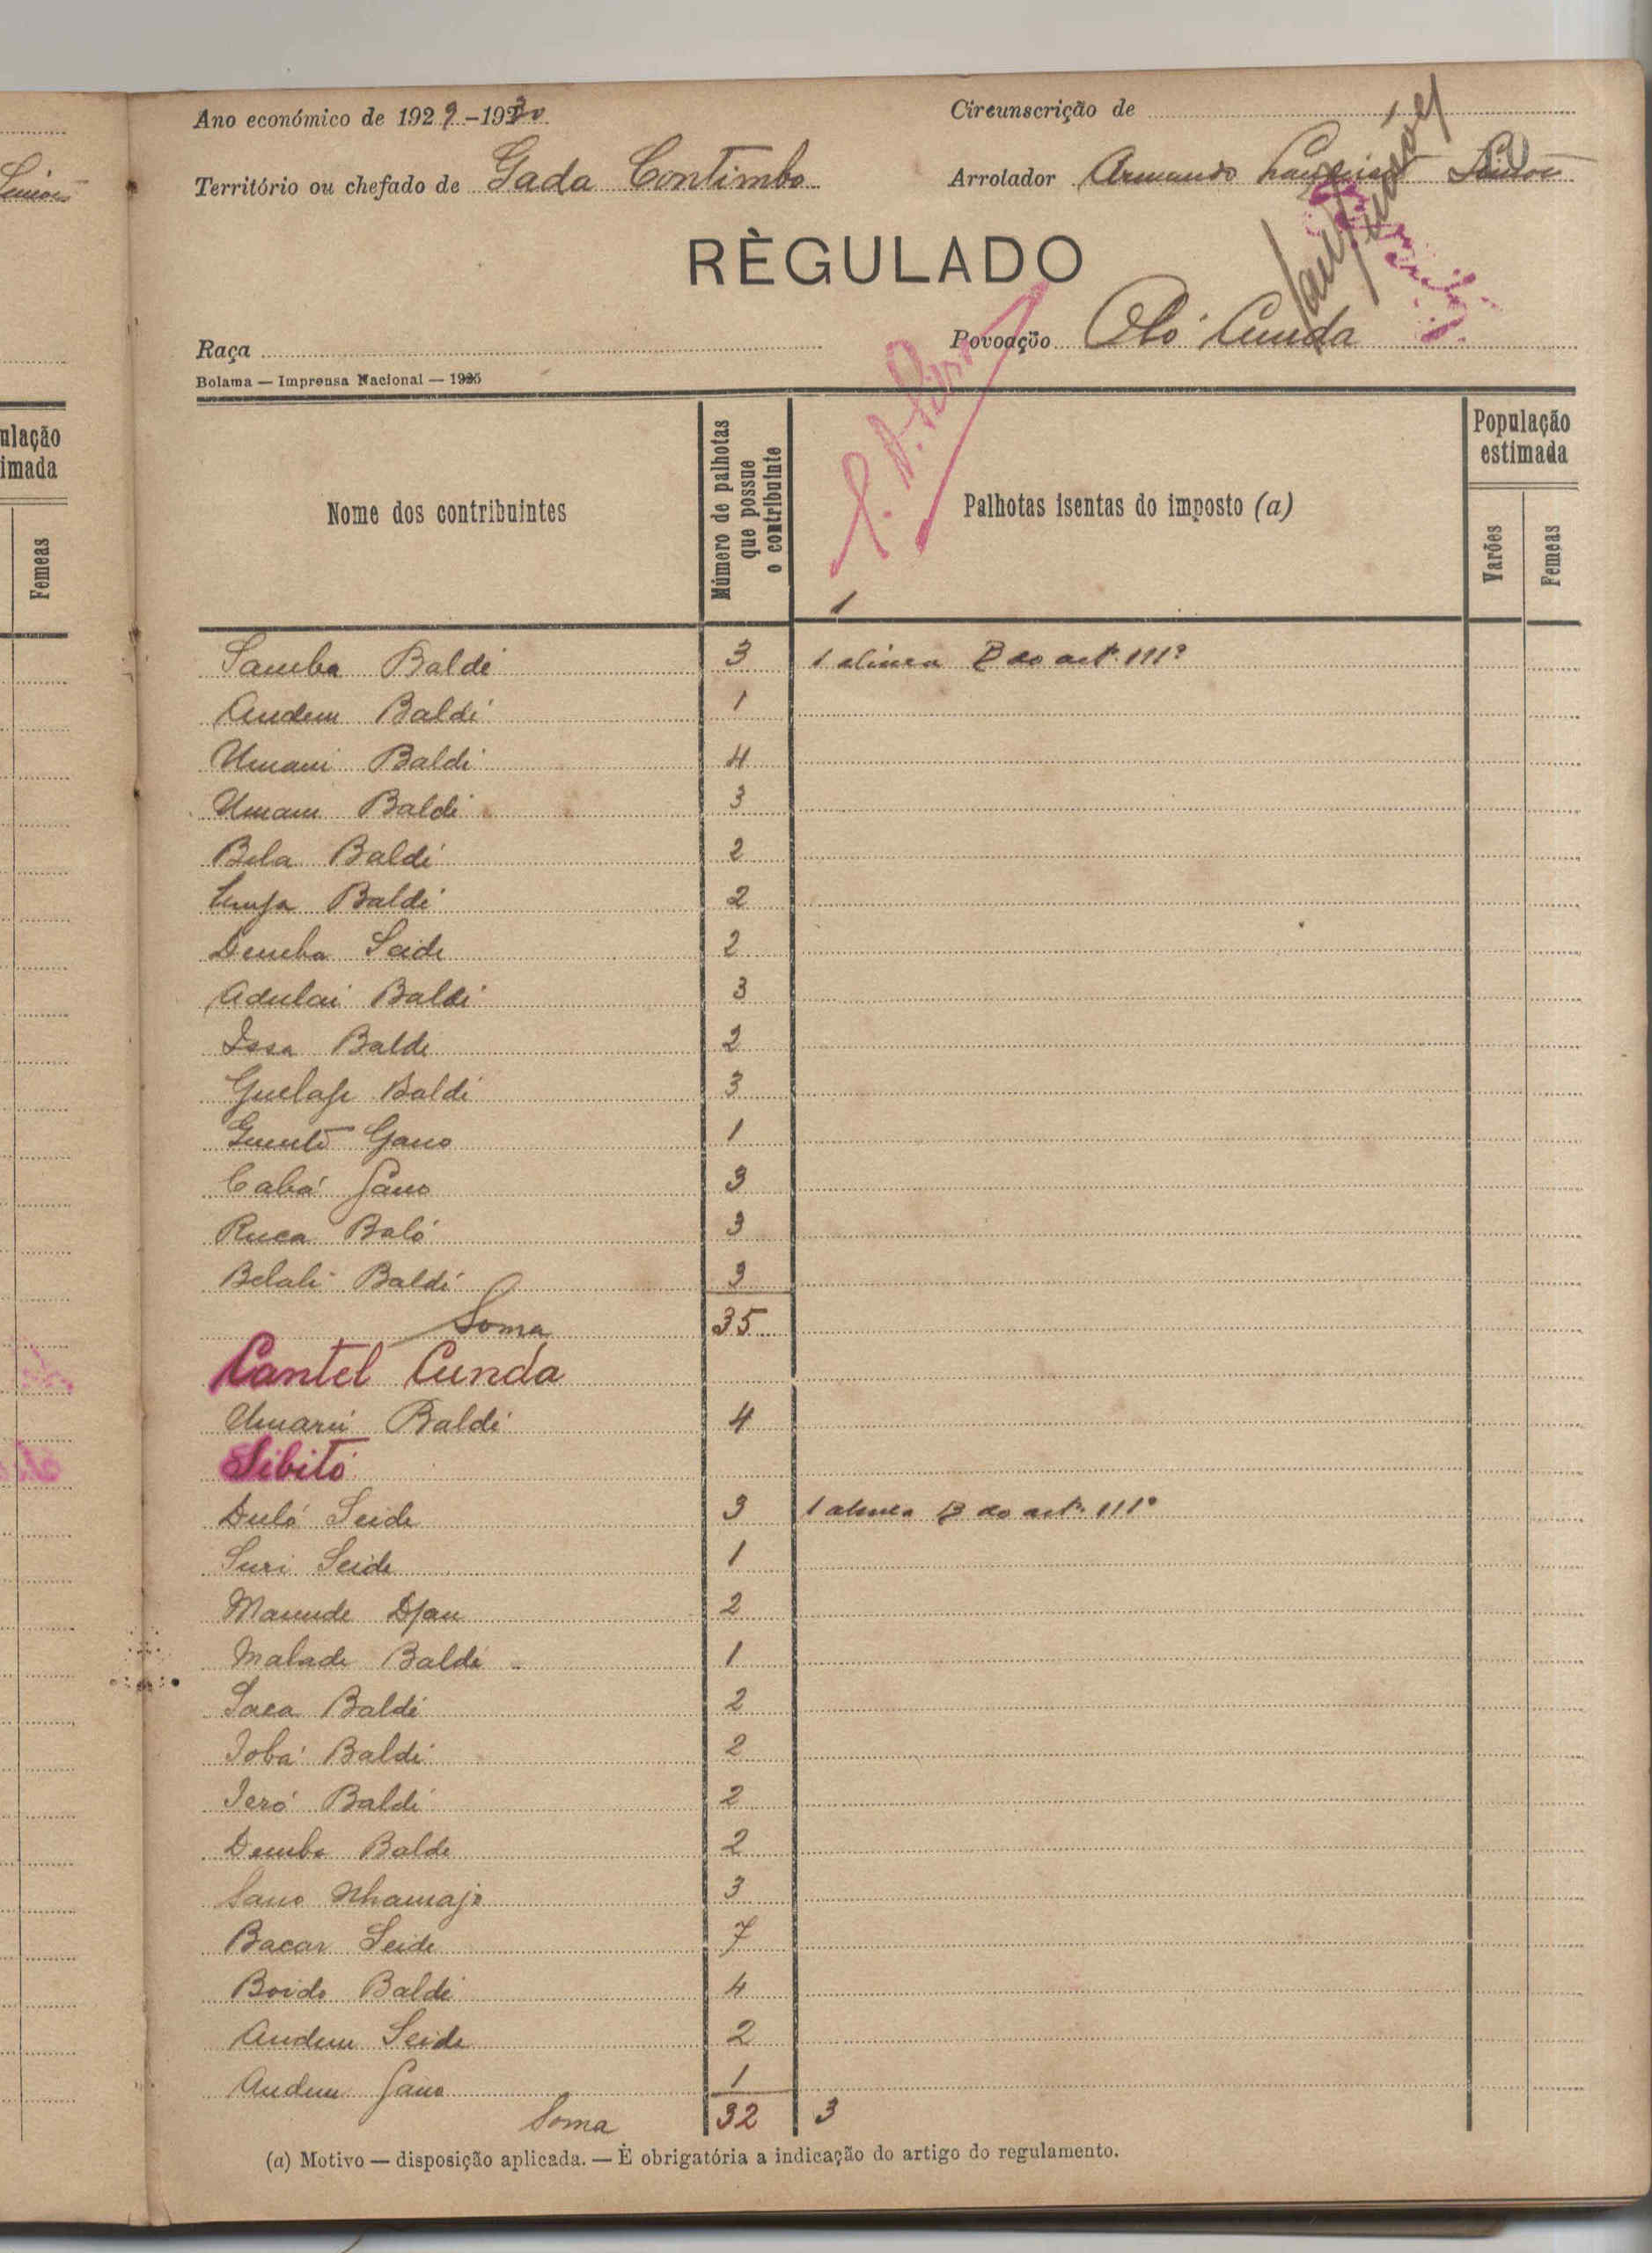 Ano económico de 1929-1930
Circunscrição de
Território ou chefado de Gada Contimbo
Arrolador Armando
RÈGULADO
Raça
Povoação Oló Cunda
Bolama — Imprensa Nacional — 1925
Nome dos contribuintes
Número de palhotas que possue o contribuinte
Palhotas isentas do imposto (a)
População estimada
Varões
Femeas
1
Samba Baldé 3 1 alinea B do artº. 111º
Andem Baldé 1
Umani Baldé 4
Umani Baldé 3
Bela Baldé 2
Baldé 2
Demba Seide 2
Adulai Baldé 3
Issa Baldé 2
Guelaje Baldé 3
Gano 1
Cabá Gano 3
Ruca Baló 3
Belali Baldé 3
Soma 35
Cantel Cunda
Umarú Baldé 4
Sibitó
Duló Seide 3 1 alinea B do artº. 111º
Suri Seide 1
Mamude Djau 2
Malade Baldé 1
Saca Baldé 2
Iobá Baldé 2
Ieró Baldé 2
Demba Balde 2
Sano Nhamajo 3
Bacar Seide 7
Boido Baldé 4
Andem Seide 2
Andem Gano 1
Soma 32 3
(a) Motivo — disposição aplicada. — É obrigatória a indicação do artigo do regulamento.
ulação
imada
Femeas